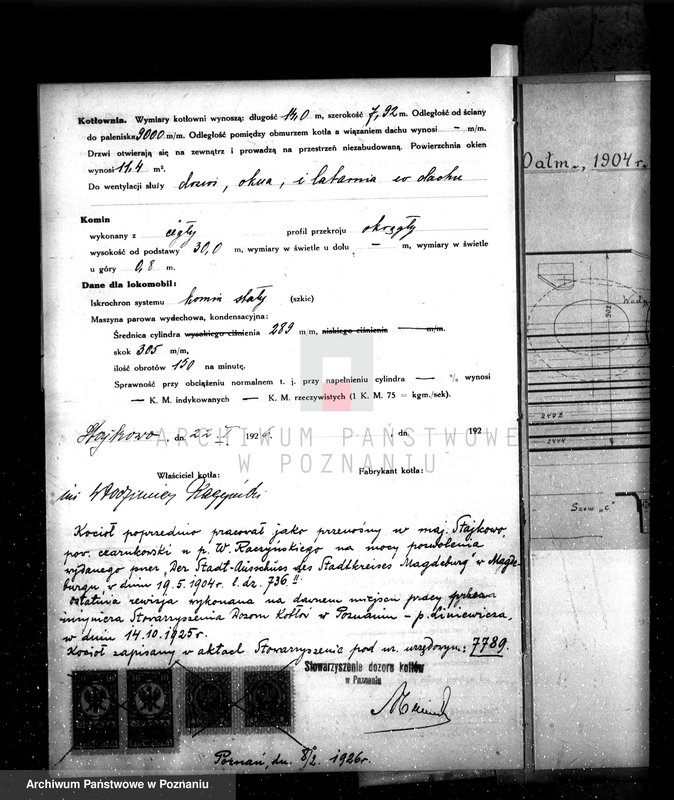 Kotłownia. Wymiary kotłowni wynoszą: długość 14,0 m, szerokość 7,92 m. Odległość od ściany
do paleniska 9000 m/m. Odległość pomiędzy obmurzem kotła a wiązaniem dachu wynosi – m/m.
Drzwi otwierają się na zewnątrz i prowadzą na przestrzeń niezabudowaną. Powierzchnia okien
wynosi 11,4 m².
Do wentylacji służy drzwi, okna, i latarnia w dachu
Komin
wykonany z cegły profil przekroju okrągły
wysokość od podstawy 30,0 m, wymiary w świetle u dołu — m, wymiary w świetle
u góry 0,8 m.
Dane dla lokomobil:
Iskrochron systemu komin stały (szkic)
Maszyna parowa wydechowa, kondensacyjna:
Średnica cylindra wysokiego ciśnienia 289 m/m, niskiego ciśnienia — m/m.
skok 305 m/m,
ilość obrotów 150 na minutę.
Sprawność przy obciążeniu normalnem t. j. przy napełnieniu cylindra — % wynosi
— K. M. indykowanych — K. M. rzeczywistych (1 K. M. 75 = kgm./sek).
Stajkowo, dn. 22 I 1926. , dn. 192
Właściciel kotła: Fabrykant kotła:
inż Włodzimierz Raczyński
Kocioł poprzednio pracował jako przenośny w maj. Stajkowo,
pow. czarnkowski u p. W. Raczyńskiego na mocy pozwolenia
wydanego przez „Der Stadt-Ausschuss des Stadtkreises Magdeburg" w Magde-
burgu w dniu 19.5.1904 r. l. dz. 736 II.
Ostatnia rewizja wykonana na dawnem miejscu pracy przez
inżyniera Stowarzyszenia Dozoru Kotłów w Poznaniu – p. Liniewicza,
w dniu 14.10.1925 r.
Kocioł zapisany w aktach Stowarzyszenia pod nr. urzędowym: 7789.
Stowarzyszenie dozoru kotłów
w Poznaniu
Poznań, dn. 8/2. 1926 r.
Datm., 1904 r.
902
2492
2444
Szew „C"
ARCHIWUM PAŃSTWOWE
W POZNANIU
Archiwum Państwowe w Poznaniu